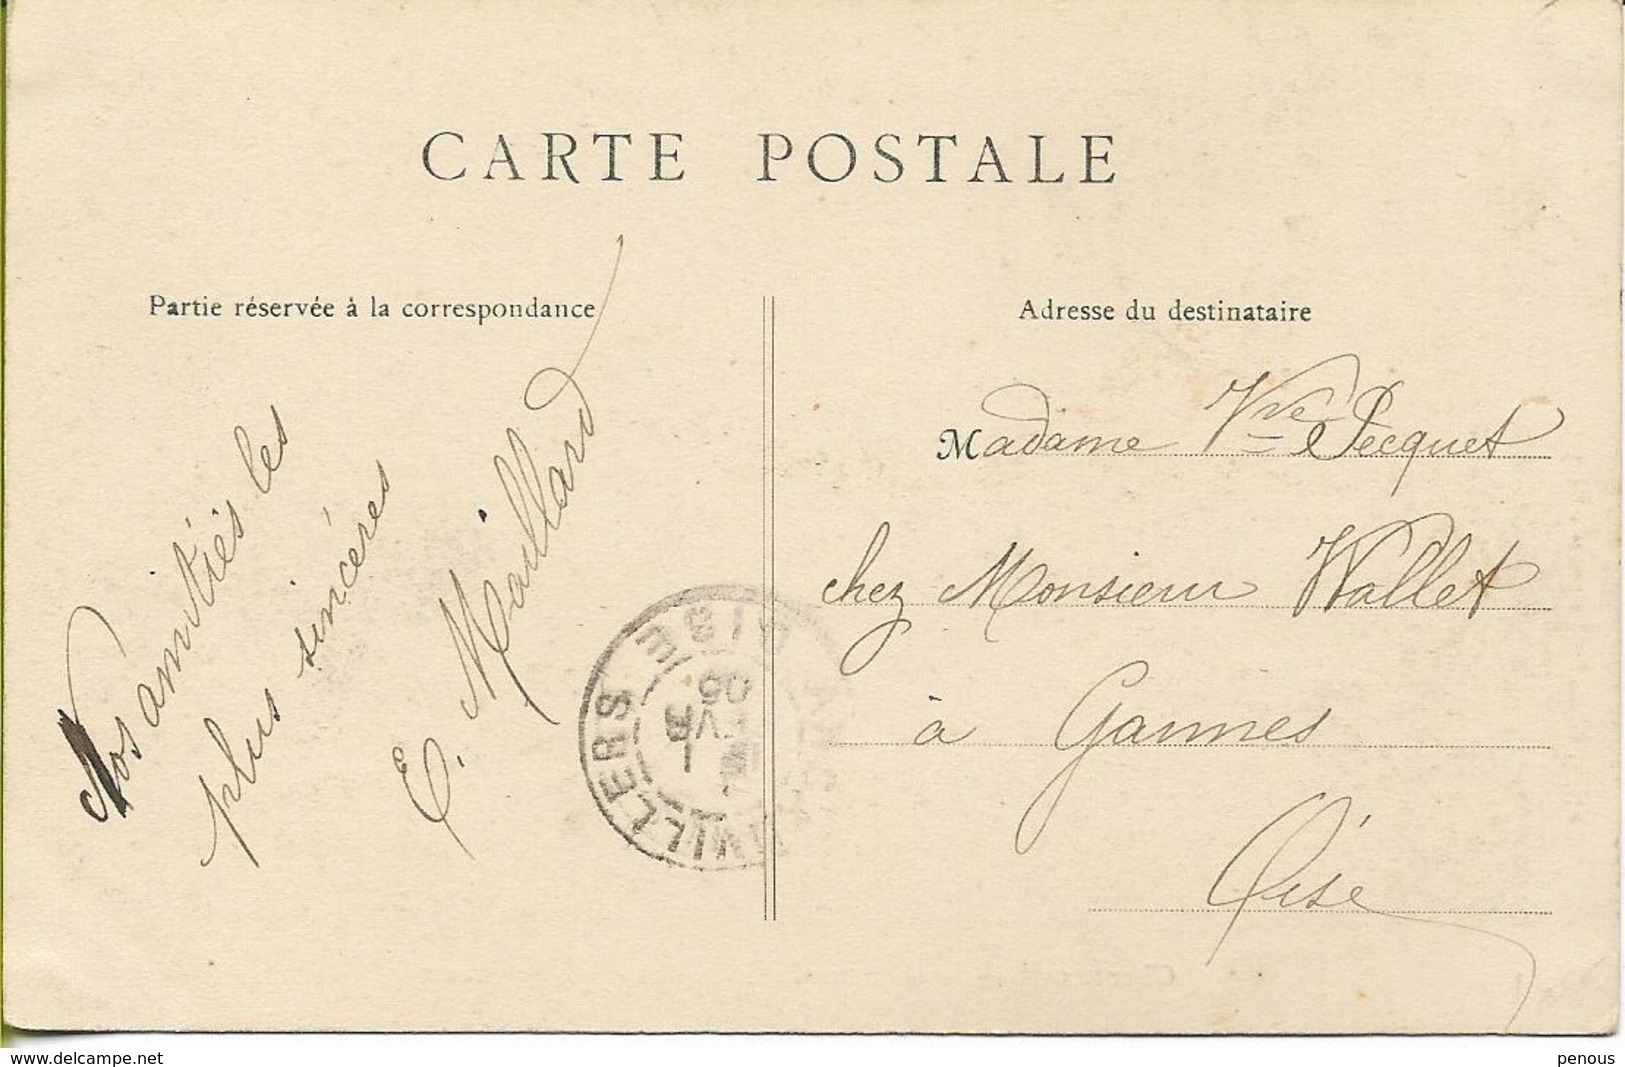 CARTE POSTALE
Partie réservée à la correspondance
Nos amitiés les
plus sincères
E. Maillard
Adresse du destinataire
Madame Vve Pecquet
chez Monsieur Wallet
à Gannes
Oise
VILLERS
OISE
www.delcampe.net
penous